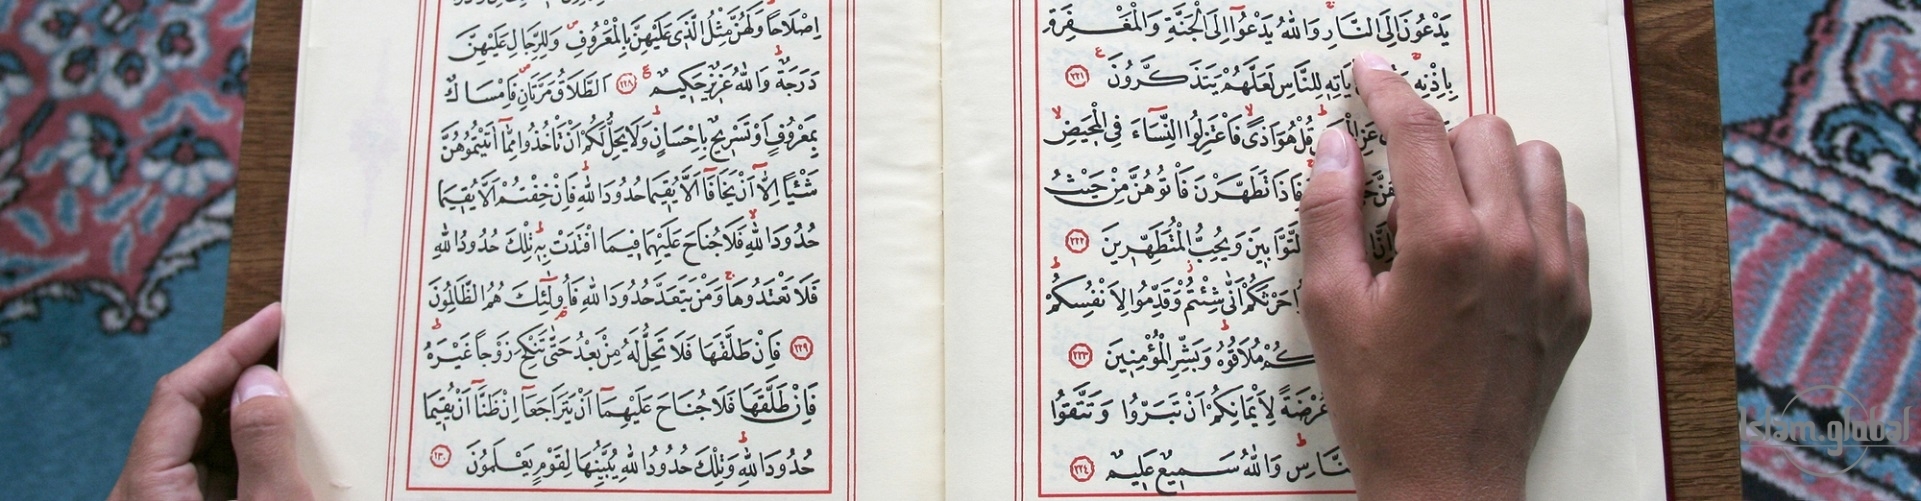 يَدْعُونَ اِلَى النَّارِ وَاللّٰهُ يَدْعُوٓا اِلَى الْجَنَّةِ وَالْمَغْفِرَةِ
بِاِذْنِهٖ اٰيَاتِهٖ لِلنَّاسِ لَعَلَّهُمْ يَتَذَكَّرُونَ ٢٢١
عَنِ الْمَحٖيضِ قُلْ هُوَ اَذًى فَاعْتَزِلُوا النِّسَٓاءَ فِى الْمَحٖيضِ
فَاِذَا تَطَهَّرْنَ فَاْتُوهُنَّ مِنْ حَيْثُ
التَّوَّابٖينَ وَيُحِبُّ الْمُتَطَهِّرٖينَ ٢٢٢
حَرْثَكُمْ اَنّٰى شِئْتُمْ وَقَدِّمُوا لِاَنْفُسِكُمْ
مُلَاقُوهُ وَبَشِّرِ الْمُؤْمِنٖينَ ٢٢٣
عُرْضَةً لِاَيْمَانِكُمْ اَنْ تَبَرُّوا وَتَتَّقُوا
النَّاسِ وَاللّٰهُ سَمٖيعٌ عَلٖيمٌ ٢٢٤
اِصْلَاحًا وَلَهُنَّ مِثْلُ الَّذٖى عَلَيْهِنَّ بِالْمَعْرُوفِ وَلِلرِّجَالِ عَلَيْهِنَّ
دَرَجَةٌ وَاللّٰهُ عَزٖيزٌ حَكٖيمٌ ٢٢٨ اَلطَّلَاقُ مَرَّتَانِ فَاِمْسَاكٌ
بِمَعْرُوفٍ اَوْ تَسْرٖيحٌ بِاِحْسَانٍ وَلَا يَحِلُّ لَكُمْ اَنْ تَاْخُذُوا مِمَّٓا اٰتَيْتُمُوهُنَّ
شَيْـًٔا اِلَّٓا اَنْ يَخَافَٓا اَلَّا يُقٖيمَا حُدُودَ اللّٰهِ فَاِنْ خِفْتُمْ اَلَّا يُقٖيمَا
حُدُودَ اللّٰهِ فَلَا جُنَاحَ عَلَيْهِمَا فٖيمَا افْتَدَتْ بِهٖ تِلْكَ حُدُودُ اللّٰهِ
فَلَا تَعْتَدُوهَا وَمَنْ يَتَعَدَّ حُدُودَ اللّٰهِ فَاُو۬لٰٓئِكَ هُمُ الظَّالِمُونَ
٢٢٩ فَاِنْ طَلَّقَهَا فَلَا تَحِلُّ لَهُ مِنْ بَعْدُ حَتّٰى تَنْكِحَ زَوْجًا غَيْرَهُ
فَاِنْ طَلَّقَهَا فَلَا جُنَاحَ عَلَيْهِمَٓا اَنْ يَتَرَاجَعَٓا اِنْ ظَنَّٓا اَنْ يُقٖيمَا
حُدُودَ اللّٰهِ وَتِلْكَ حُدُودُ اللّٰهِ يُبَيِّنُهَا لِقَوْمٍ يَعْلَمُونَ ٢٣٠
islam.global